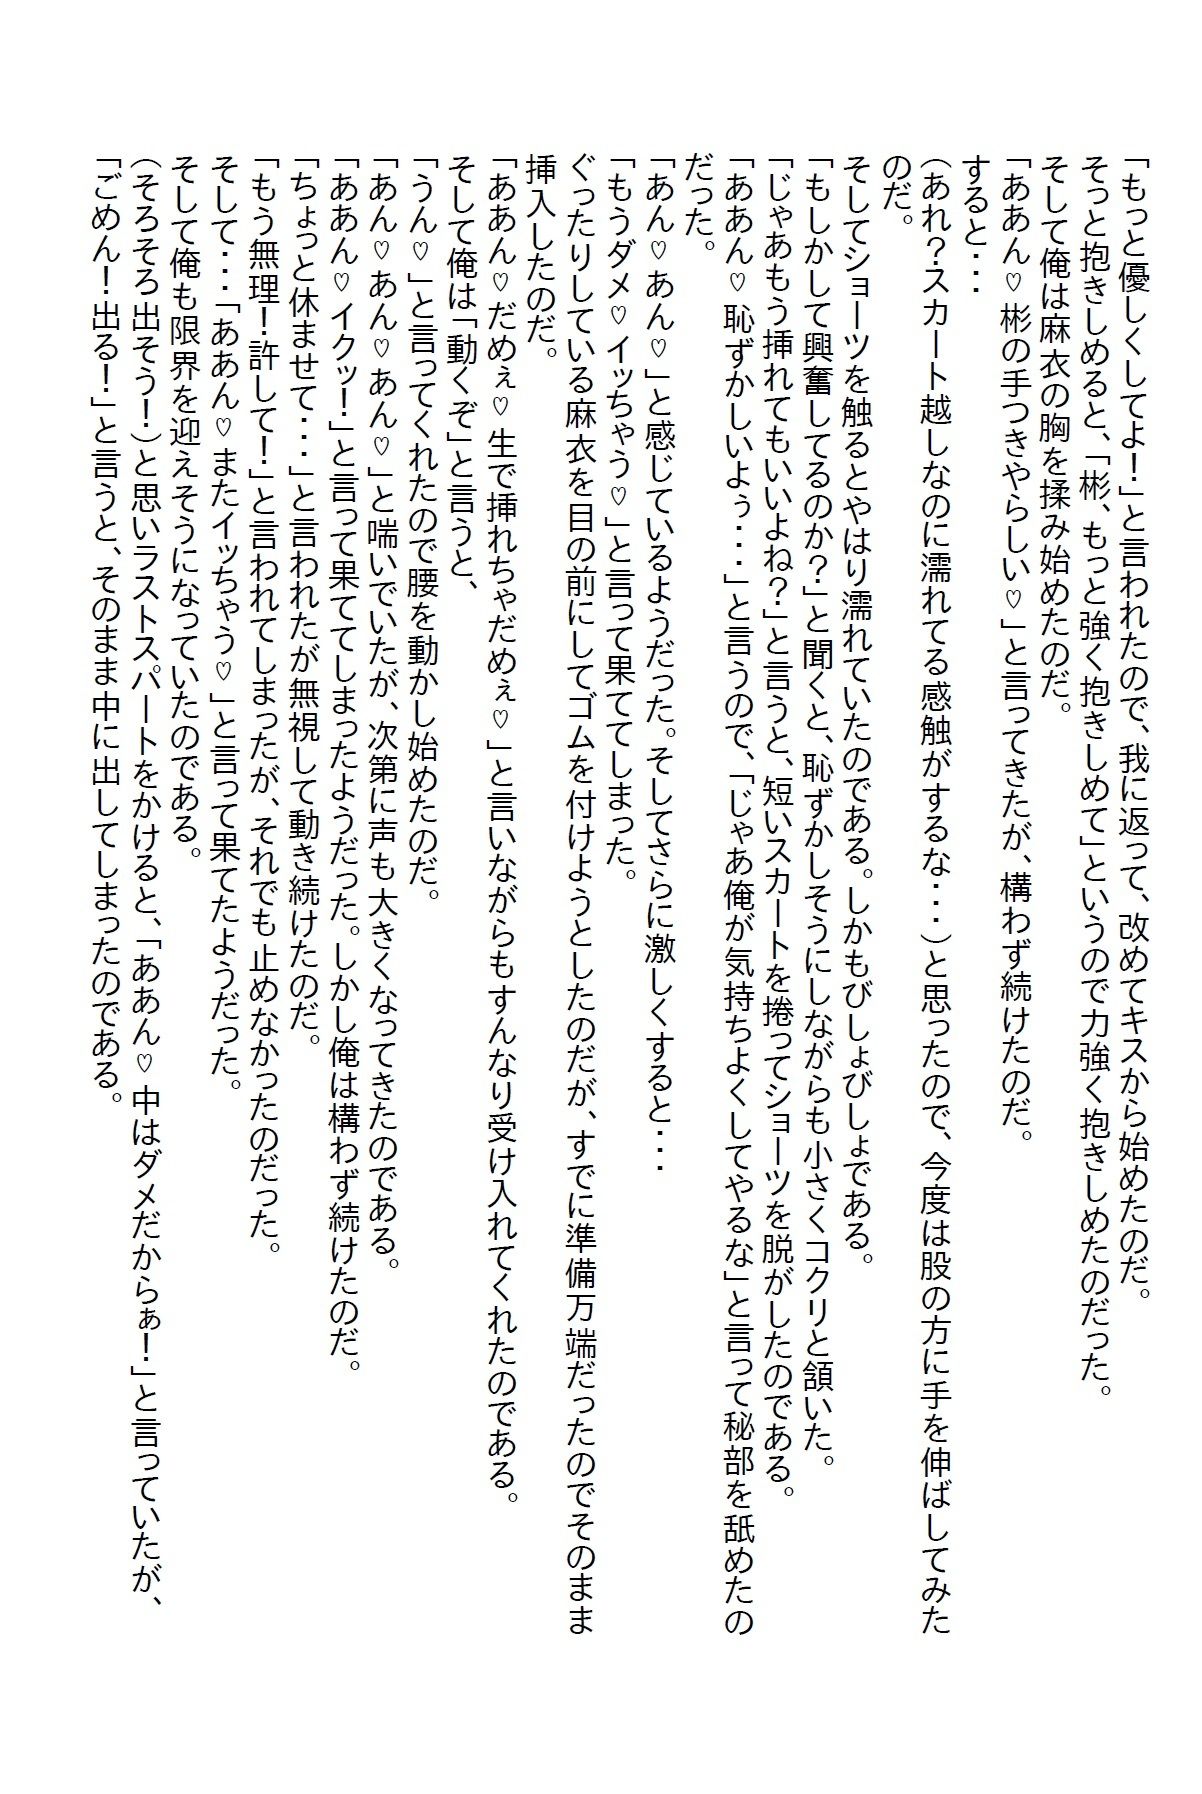 「もっと優しくしてよ！」と言われたので、我に返って、改めてキスから始めたのだ。
そっと抱きしめると、「彬、もっと強く抱きしめて」というので力強く抱きしめたのだった。
そして俺は麻衣の胸を揉み始めたのだ。
「ああん♡彬の手つきやらしい♡」と言ってきたが、構わず続けたのだ。
すると･･･
（あれ？スカート越しなのに濡れてる感触がするな･･･）と思ったので、今度は股の方に手を伸ばしてみた
のだ。
そしてショーツを触るとやはり濡れていたのである。しかもびしょびしょである。
「もしかして興奮してるのか？」と聞くと、恥ずかしそうにしながらも小さくコクリと頷いた。
「じゃあもう挿れてもいいよね？」と言うと、短いスカートを捲ってショーツを脱がしたのである。
「ああん♡恥ずかしいよぅ･･･」と言うので、「じゃあ俺が気持ちよくしてやるな」と言って秘部を舐めたの
だった。
「あん♡あん♡」と感じているようだった。そしてさらに激しくすると･･･
「もうダメ♡イッちゃう♡」と言って果ててしまった。
ぐったりしている麻衣を目の前にしてゴムを付けようとしたのだが、すでに準備万端だったのでそのまま
挿入したのだ。
「ああん♡だめぇ♡生で挿れちゃだめぇ♡」と言いながらもすんなり受け入れてくれたのである。
そして俺は「動くぞ」と言うと、
「うん♡」と言ってくれたので腰を動かし始めたのだ。
「あん♡あん♡あん♡」と喘いでいたが、次第に声も大きくなってきたのである。
「ああん♡イクッ！」と言って果ててしまったようだった。しかし俺は構わず続けたのだ。
「ちょっと休ませて･･･」と言われたが無視して動き続けたのだ。
「もう無理！許して！」と言われてしまったが、それでも止めなかったのだった。
そして･･･「ああん♡またイッちゃう♡」と言って果てたようだった。
そして俺も限界を迎えそうになっていたのである。
（そろそろ出そう！）と思いラストスパートをかけると、「ああん♡中はダメだからぁ！」と言っていたが、
「ごめん！出る！」と言うと、そのまま中に出してしまったのである。